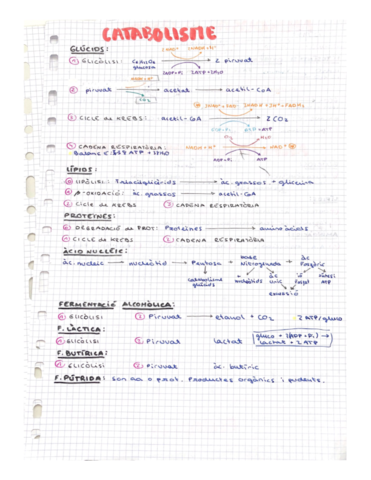 CATABOLISME
GLÚCIDS:
① GLICÒLISI: C6H12O6 → 2 piruvat
glucosa 2ADP+Pi 2ATP+2H2O
② piruvat → acetat → acetil-CoA
CO2
③ CICLE de KREBS: acetil-CoA → 2CO2
④ CADENA RESPIRATÒRIA: NADH+H+ NAD+
Balanç ADP+Pi ATP
LÍPIDS:
① LIPÒLISI: Triacilglicèrids → àc. grassos + glicerina
② β-OXIDACIÓ: àc. grassos → acetil-CoA
③ Cicle de KREBS ④ CADENA RESPIRATÒRIA
PROTEÏNES:
① DEGRADACIÓ de PROT: Proteïnes → aminoàcids
② CICLE de KREBS ③ CADENA RESPIRATÒRIA
ÀCID NUCLÈIC:
àc. nucleic → nucleòtid → Pentosa + base Nitrogenada + àc. Fosfòric
catabolisme glúcids nucleòtids àc. úric
excreció
FERMENTACIÓ ALCOHÒLICA:
① GLICÒLISI ② Piruvat → etanol + CO2 2 ATP/gluco
F. LÀCTICA:
① GLICÒLISI ② Piruvat lactat gluco + 2(ADP+Pi) → lactat + 2 ATP
F. BUTÍRICA:
① GLICÒLISI ② Piruvat àc. butíric
F. PÚTRIDA: son na o prot. Productes orgànics i pudents.